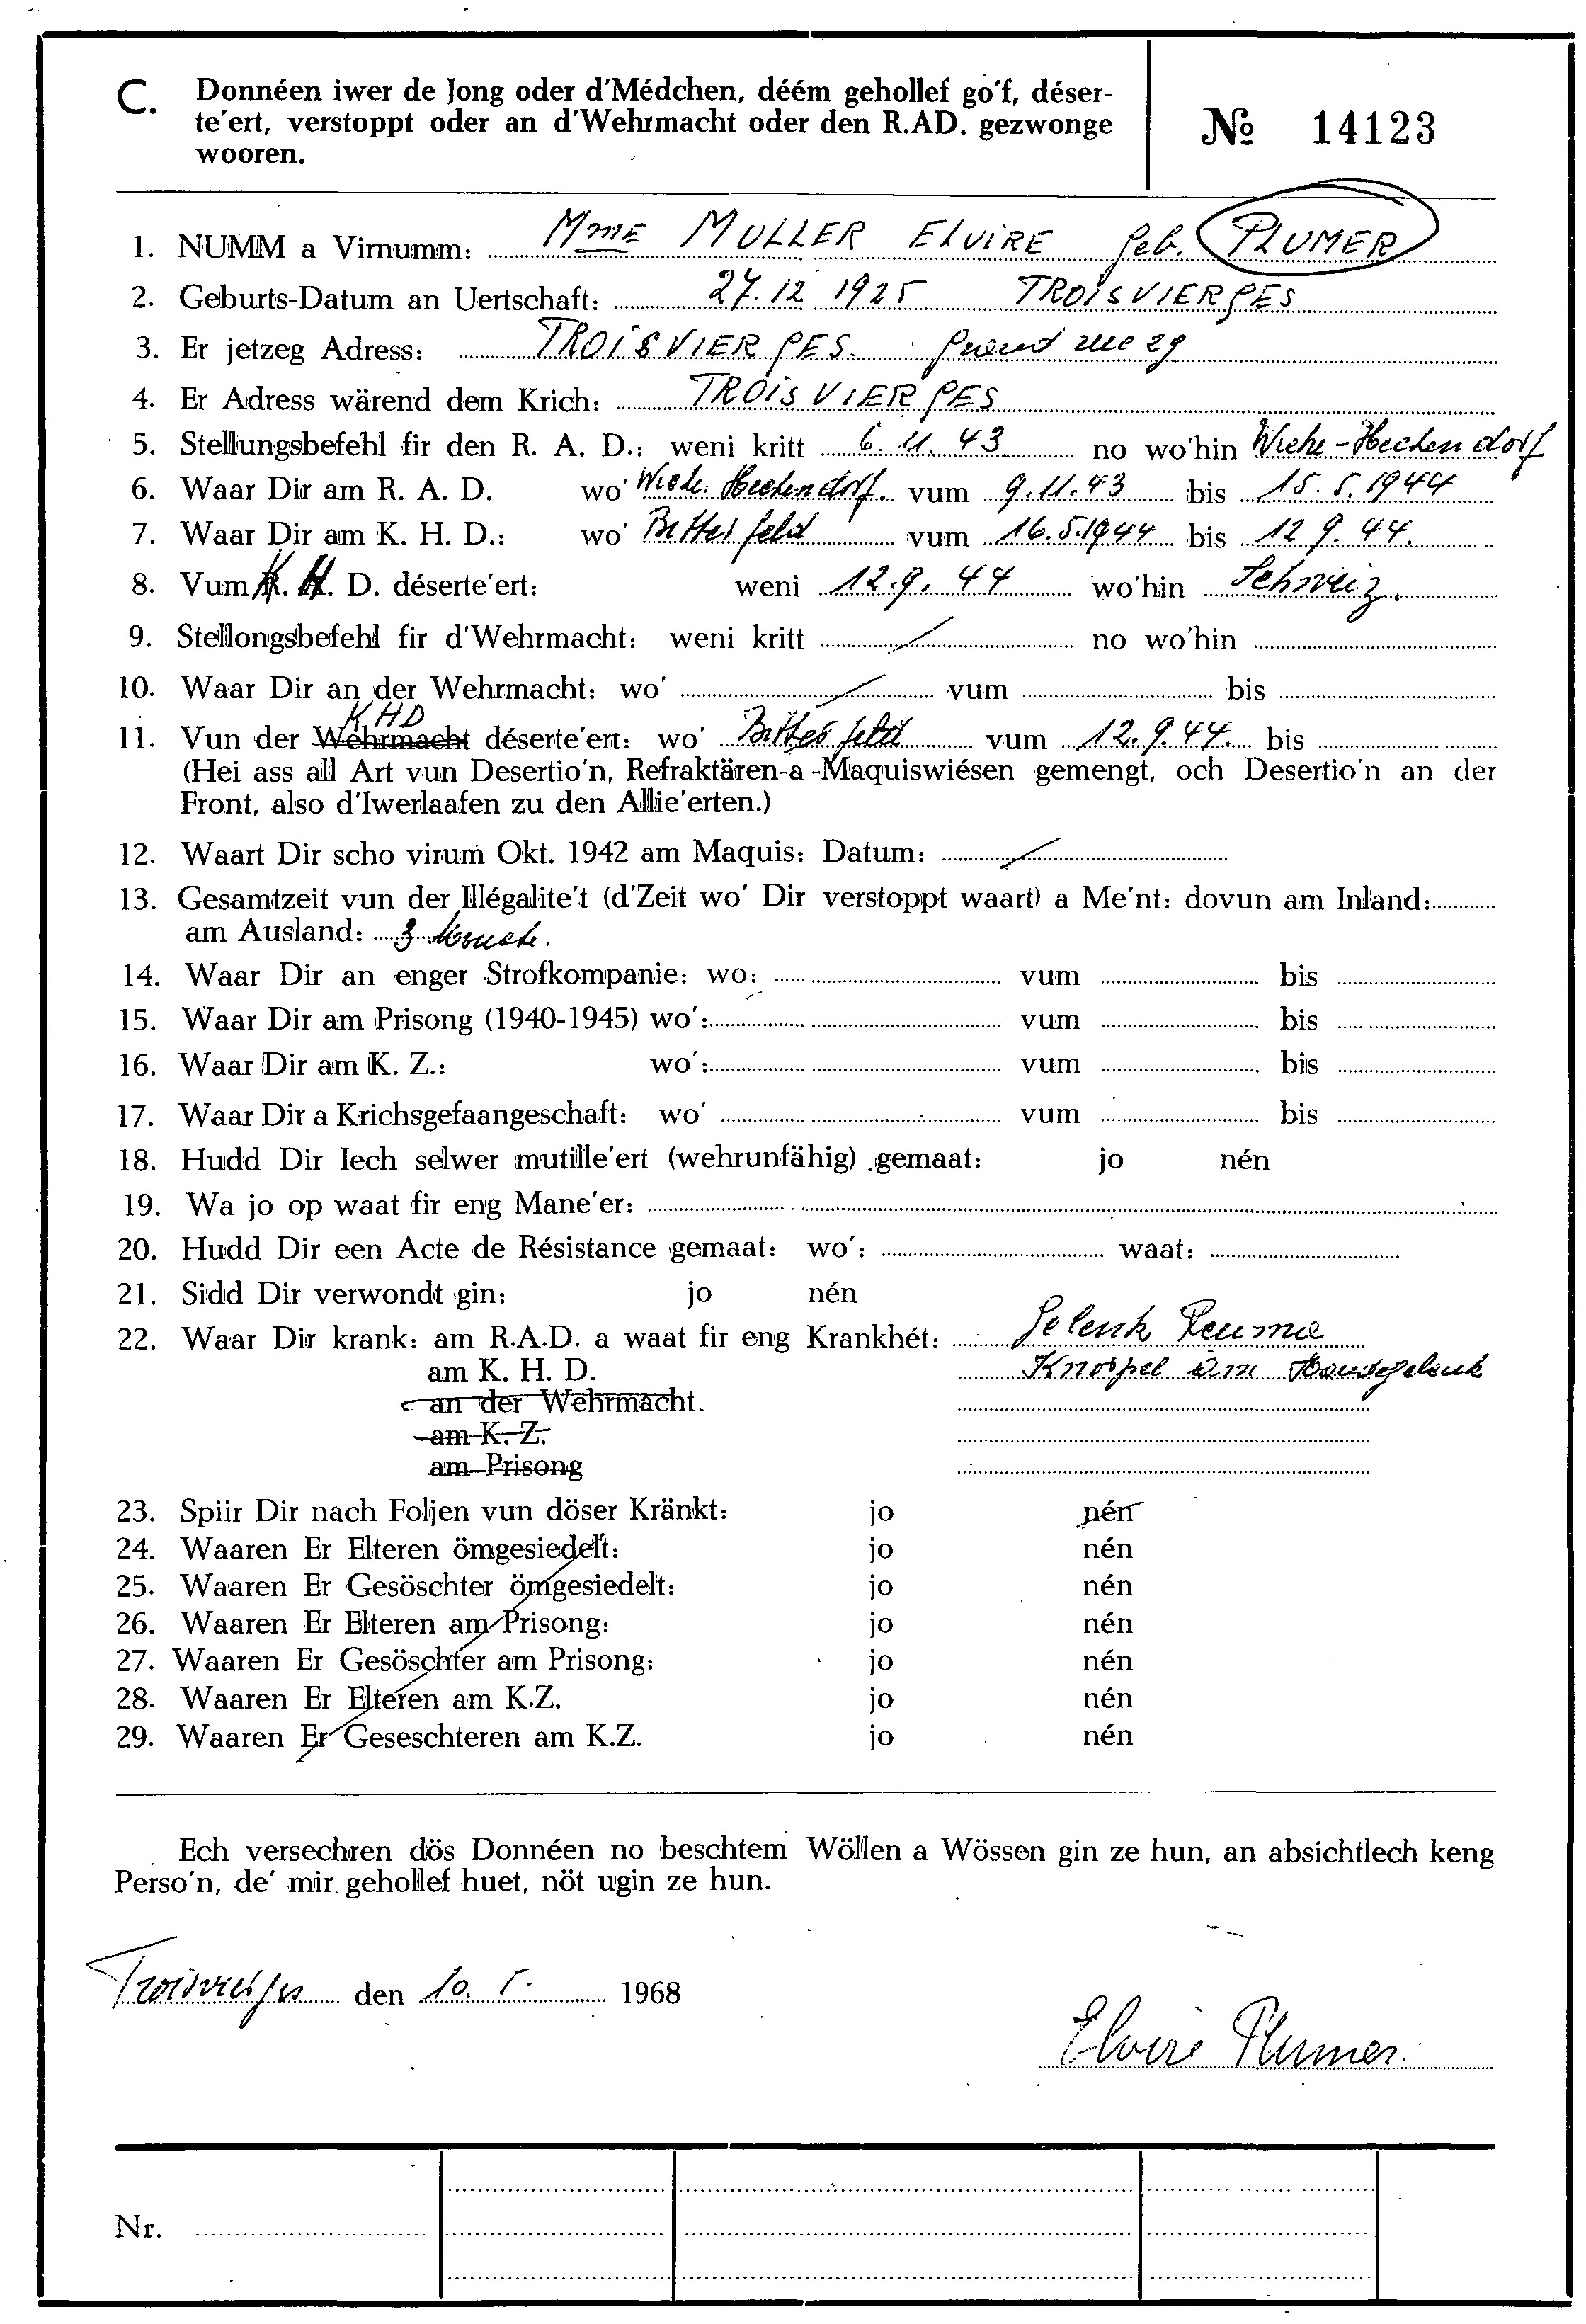 C. Donnéen iwer de Jong oder d'Médchen, déém gehollef go'f, déser-
te'ert, verstoppt oder an d'Wehrmacht oder den R.AD. gezwonge
wooren.
№ 14123
1. NUMM a Virnumm: Mme MULLER ELVIRE geb. PLUMER
2. Geburts-Datum an Uertschaft: 27.12 1925 TROISVIERGES
3. Er jetzeg Adress: TROISVIERGES. rue 29
4. Er Adress wärend dem Krich: TROISVIERGES
5. Stellungsbefehl fir den R. A. D.: weni kritt 6.11.43 no wo'hin Wiehe-Hechendorf
6. Waar Dir am R. A. D. wo' Wiehe. Hechendorf. vum 9.11.43 bis 15.5.1944
7. Waar Dir am K. H. D.: wo' Bitterfeld vum 16.5.1944 bis 12.9.44.
8. Vum K. H. D. déserte'ert: weni 12.9.44 wo'hin Schweiz.
9. Stellongsbefehl fir d'Wehrmacht: weni kritt / no wo'hin
10. Waar Dir an der Wehrmacht: wo' / vum bis
KHD
11. Vun der Wehrmacht déserte'ert: wo' Bitterfeld vum 12.9.44. bis
(Hei ass all Art vun Desertio'n, Refraktären-a -Maquiswiésen gemengt, och Desertio'n an der
Front, also d'Iwerlaafen zu den Allie'erten.)
12. Waart Dir scho virum Okt. 1942 am Maquis: Datum: /
13. Gesamtzeit vun der Illégalite't (d'Zeit wo' Dir verstoppt waart) a Me'nt: dovun am Inland:
am Ausland: 8 Monate.
14. Waar Dir an enger Strofkompanie: wo: vum bis
15. Waar Dir am Prisong (1940-1945) wo': vum bis
16. Waar Dir am K. Z.: wo': vum bis
17. Waar Dir a Krichsgefaangeschaft: wo' vum bis
18. Hudd Dir Iech selwer mutille'ert (wehrunfähig) gemaat: jo nén
19. Wa jo op waat fir eng Mane'er:
20. Hudd Dir een Acte de Résistance gemaat: wo': waat:
21. Sidd Dir verwondt gin: jo nén
22. Waar Dir krank: am R.A.D. a waat fir eng Krankhét: Gelenk Reuma
am K. H. D. Knorpel am Handgelenk
an der Wehrmacht.
am K. Z.
am Prisong
23. Spiir Dir nach Foljen vun döser Kränkt: jo nén
24. Waaren Er Elteren ömgesiedelt: jo nén
25. Waaren Er Gesöschter ömgesiedelt: jo nén
26. Waaren Er Elteren am Prisong: jo nén
27. Waaren Er Gesöschter am Prisong: jo nén
28. Waaren Er Elteren am K.Z. jo nén
29. Waaren Er Geseschteren am K.Z. jo nén
Ech versechren dös Donnéen no beschtem Wöllen a Wössen gin ze hun, an absichtlech keng
Perso'n, de' mir gehollef huet, nöt ugin ze hun.
Troisvierges den 10. 5. 1968
Elvire Plumer.
Nr.